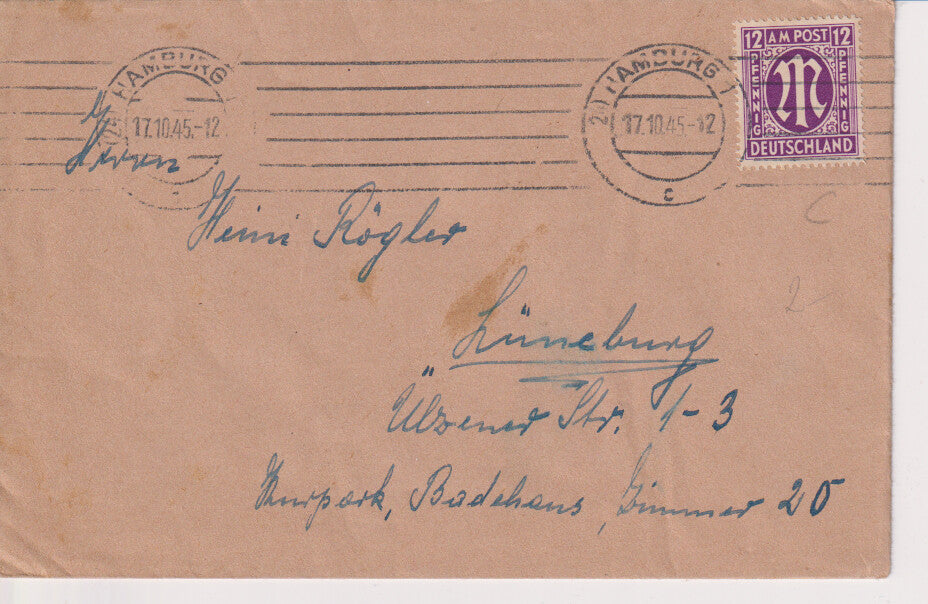 12 AM POST 12
PFENNIG PFENNIG
DEUTSCHLAND
HAMBURG
17.10.45.-12
HAMBURG 1
17.10.45-12
c
Herrn
Heini Rögler
Lüneburg
Ülzener Str. 1-3
Kurpark, Badehaus, Zimmer 20
C
2-